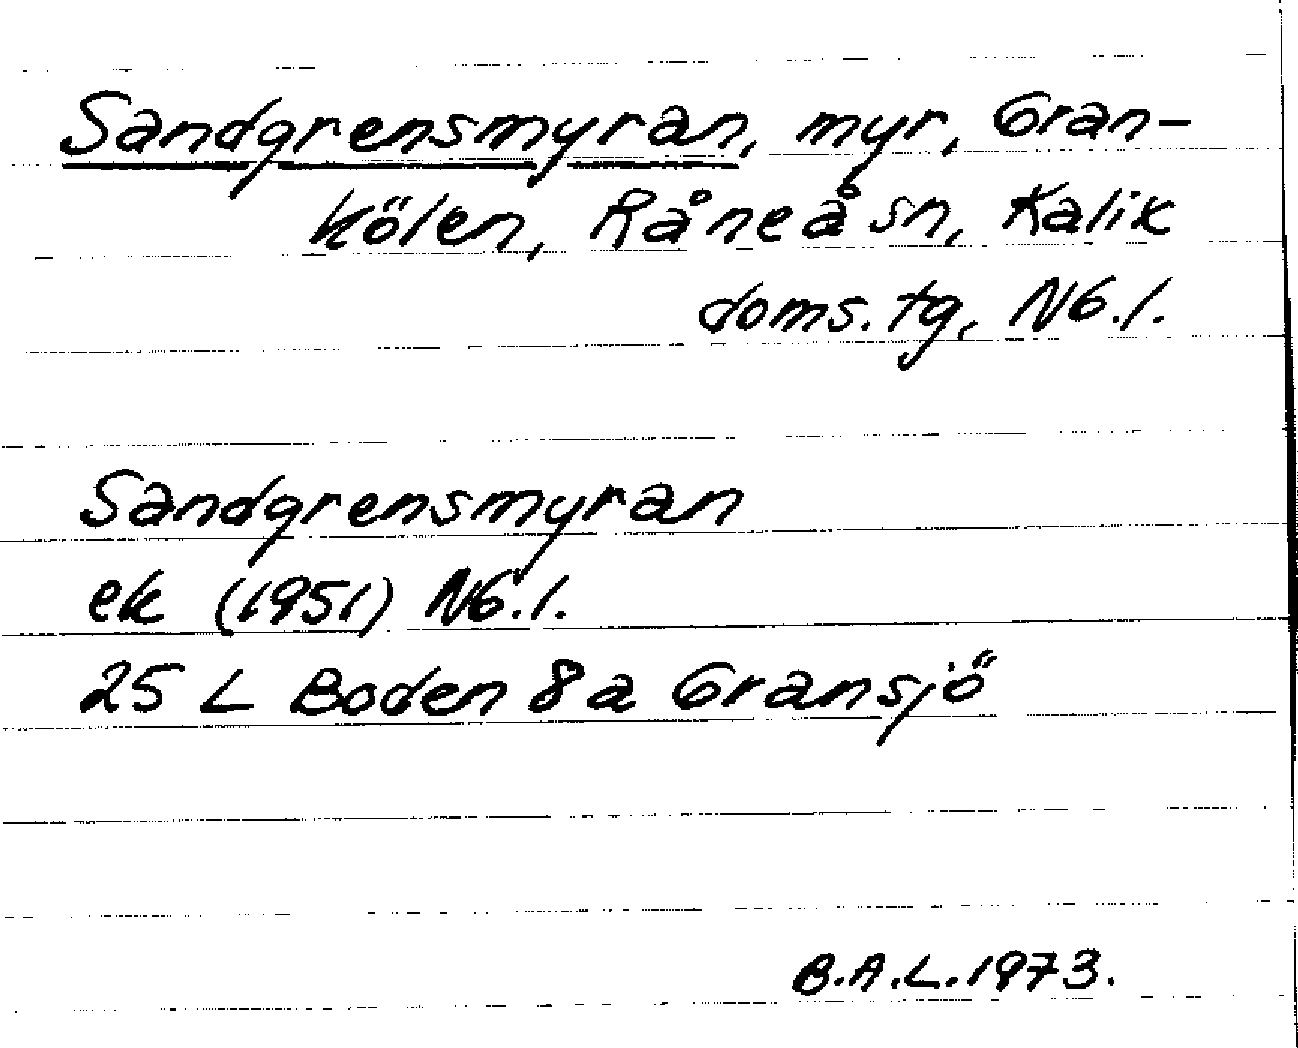 Sandgrensmyran, myr, Gran-
kölen, Råneå sn, Kalix
doms. tg, Nb.l.
Sandgrensmyran
ek (1951) Nb.l.
25 L Boden 8a Gransjö
B.A.L. 1973.